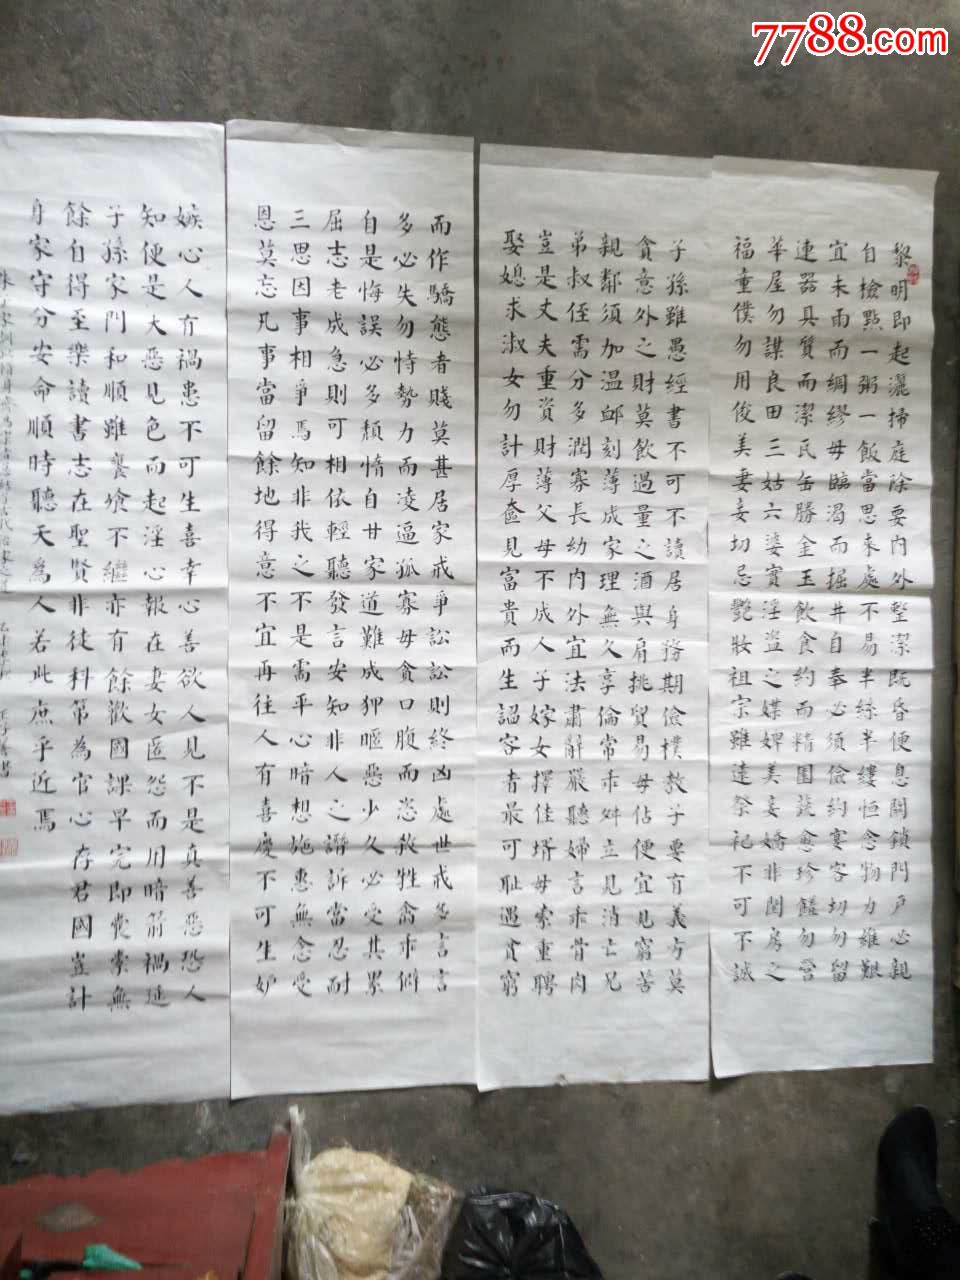 7788.com
黎明即起灑掃庭除要內外整潔既昏便息關鎖門戶必親
自檢點一粥一飯當思來處不易半絲半縷恒念物力維艱
宜未雨而綢繆毋臨渴而掘井自奉必須儉約宴客切勿留
連器具質而潔瓦缶勝金玉飲食約而精園蔬愈珍饈勿營
華屋勿謀良田三姑六婆實淫盜之媒婢美妾嬌非閨房之
福童僕勿用俊美妻妾切忌艷妝祖宗雖遠祭祀不可不誠
子孫雖愚經書不可不讀居身務期儉樸教子要有義方莫
貪意外之財莫飲過量之酒與肩挑貿易毋佔便宜見窮苦
親鄰須加溫卹刻薄成家理無久享倫常乖舛立見消亡兄
弟叔侄需分多潤寡長幼內外宜法肅辭嚴聽婦言乖骨肉
豈是丈夫重資財薄父母不成人子嫁女擇佳壻毋索重聘
娶媳求淑女勿計厚奩見富貴而生諂容者最可恥遇貧窮
而作驕態者賤莫甚居家戒爭訟訟則終凶處世戒多言言
多必失勿恃勢力而凌逼孤寡毋貪口腹而恣殺牲禽乖僻
自是悔誤必多頹惰自甘家道難成狎暱惡少久必受其累
屈志老成急則可相依輕聽發言安知非人之譖訴當忍耐
三思因事相爭焉知非我之不是需平心暗想施惠無念受
恩莫忘凡事當留餘地得意不宜再往人有喜慶不可生妒
嫉心人有禍患不可生喜幸心善欲人見不是真善惡恐人
知便是大惡見色而起淫心報在妻女匿怨而用暗箭禍延
子孫家門和順雖饔飧不繼亦有餘歡國課早完即囊橐無
餘自得至樂讀書志在聖賢非徒科第為官心存君國豈計
身家守分安命順時聽天為人若此庶乎近焉